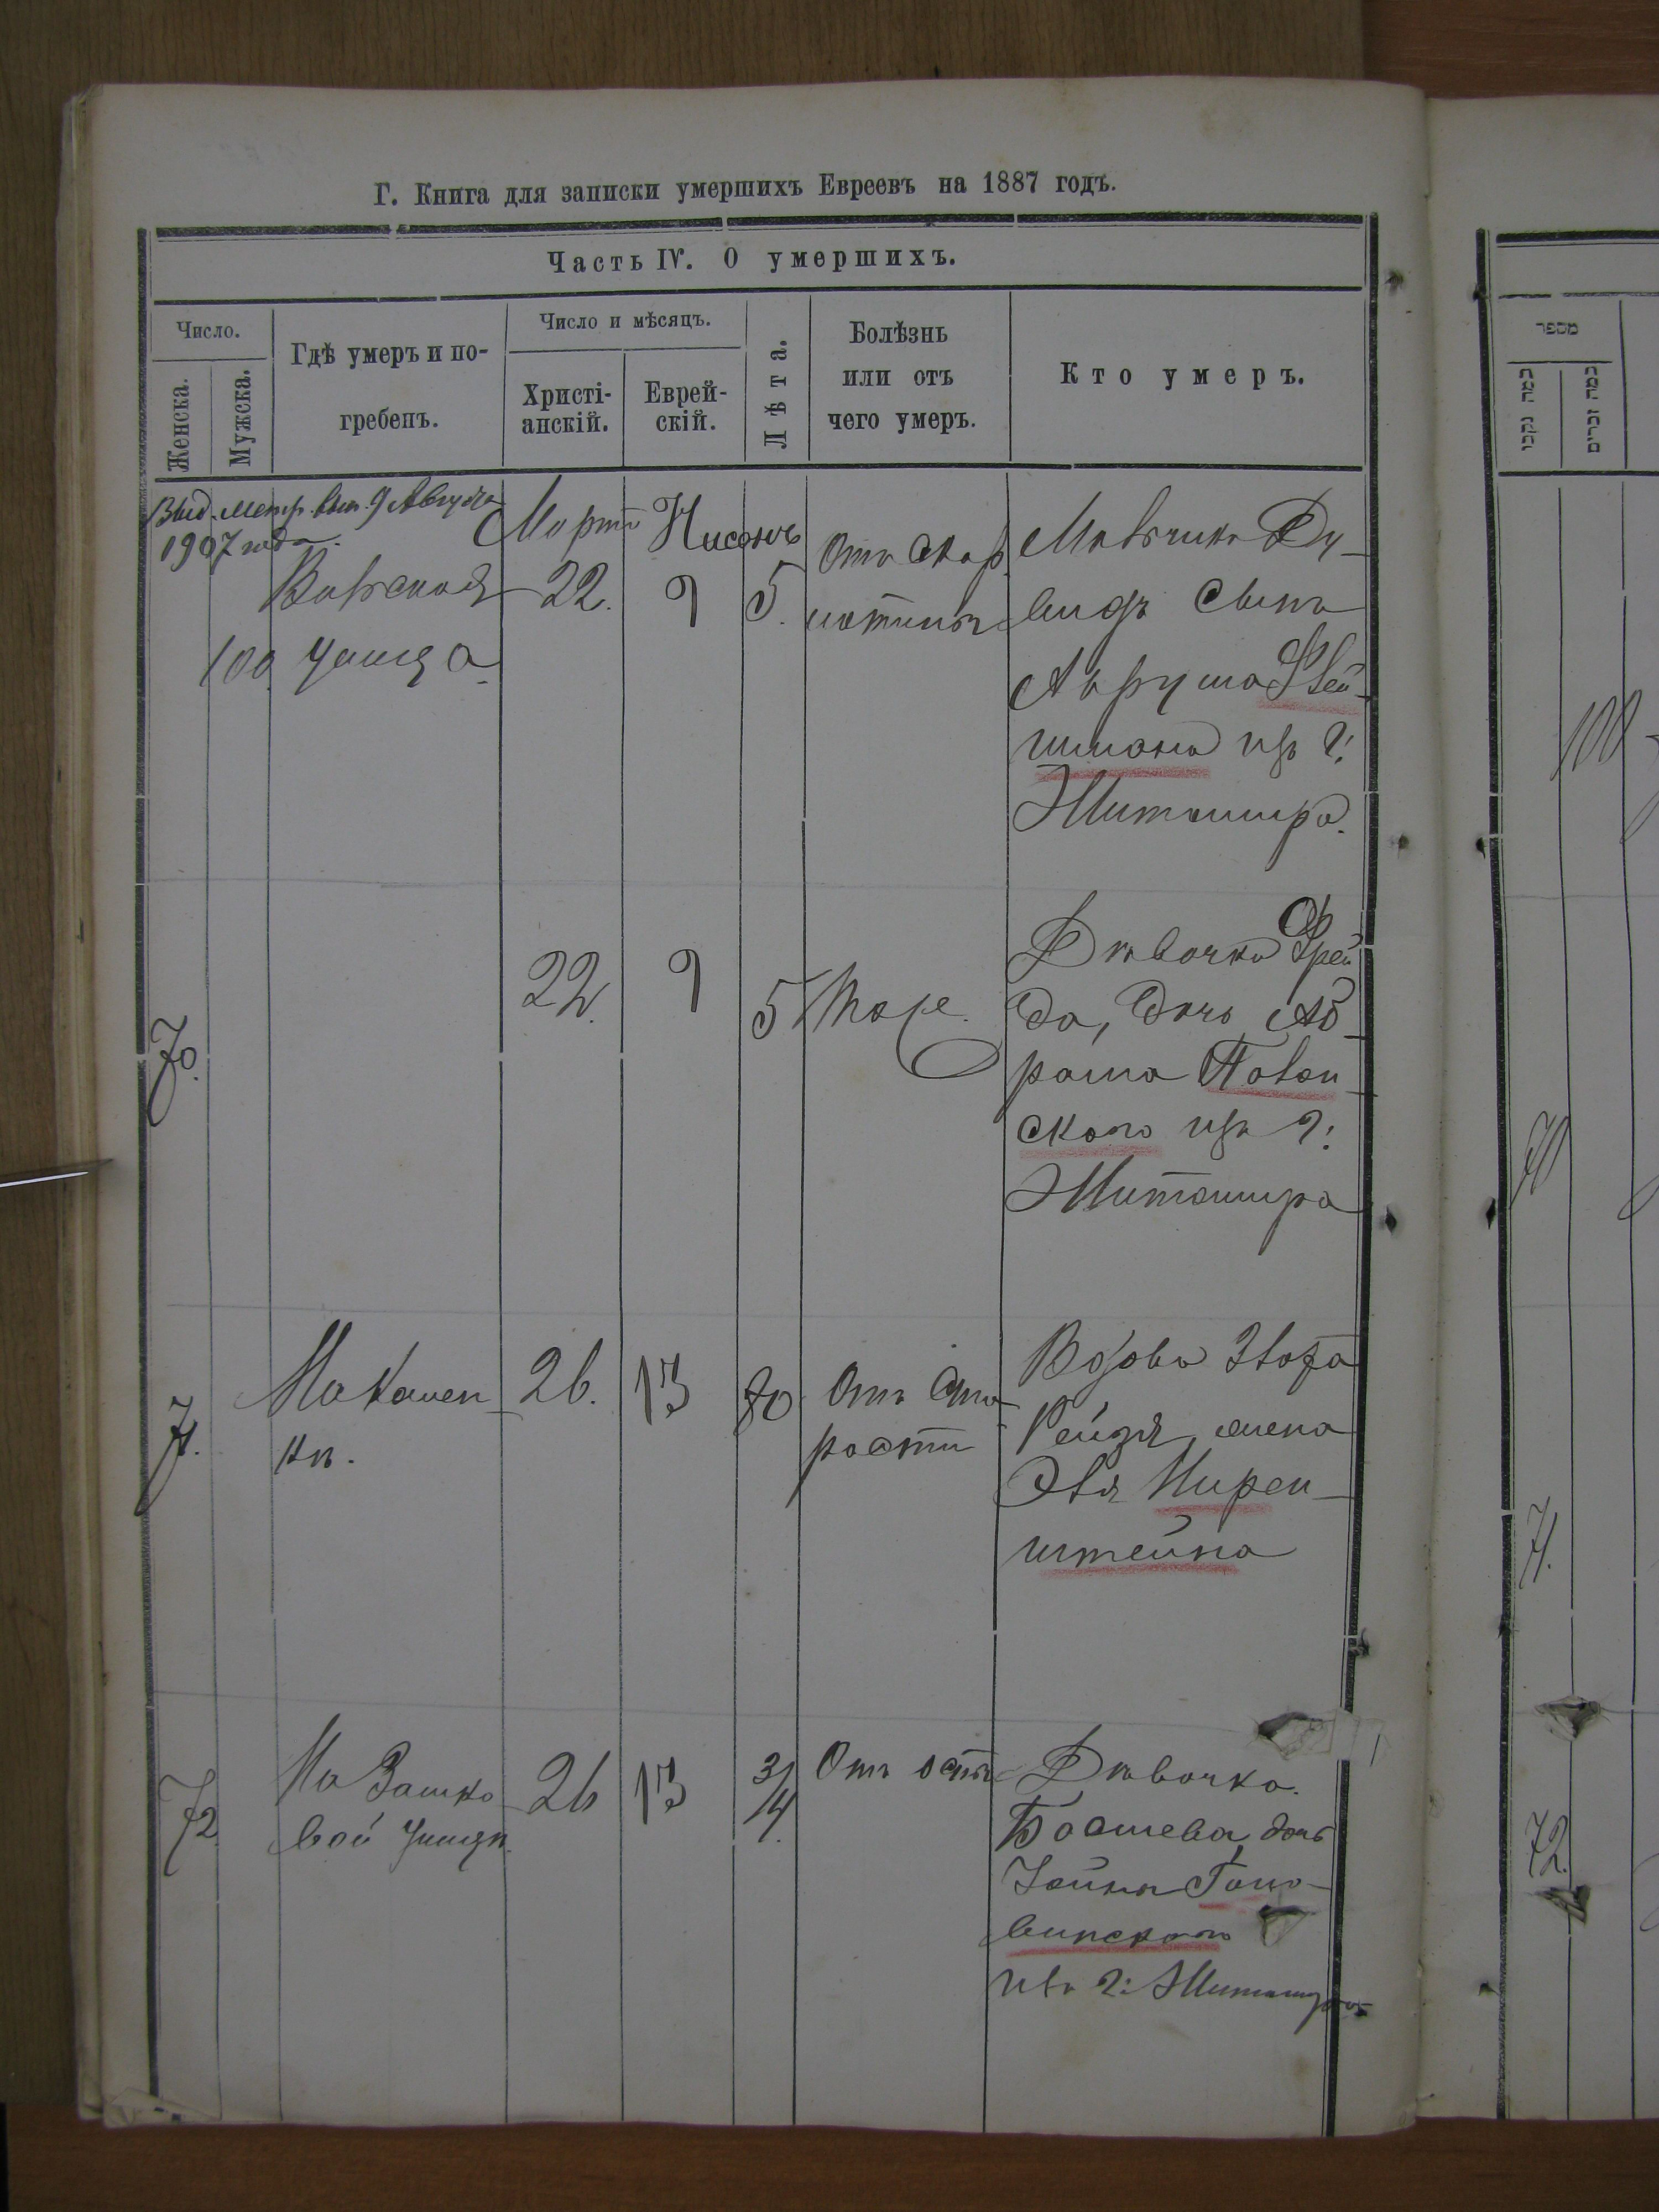 Г. Книга для записки умершихъ Евреевъ на 1887 годъ.
Часть IV. О умершихъ.
Число.
Женска.
Мужска.
Гдѣ умеръ и по-
гребенъ.
Число и мѣсяцъ.
Христі-
анскій.
Еврей-
скій.
Лѣта.
Болѣзнь
или отъ
чего умеръ.
Кто умеръ.
Выд. метр. вып. 9 Августа
1907 года.
100
улица
Мартъ
22.
Нисонъ
9
5.
Отъ скар
латины
Мальчикъ Ду-
видъ сынъ
Аврума Флей-
шмана изъ г:
Житомира.
70.
22.
9
5
Тоже.
Дѣвочка Фрей
да, дочь Аб-
рама
ского изъ г:
Житомира
71.
На Камен-
кѣ.
26.
13
80
Отъ ста-
рости
Вдова Злота
Рейзя, жена
штейна
72.
На
вой улицѣ.
26
13
3/4
Отъ оспы
Дѣвочка.
Басшева дочь
винского
изъ г: Житомира
מספר
כמה נקבו
כמה זכרים
100
70
71.
72.